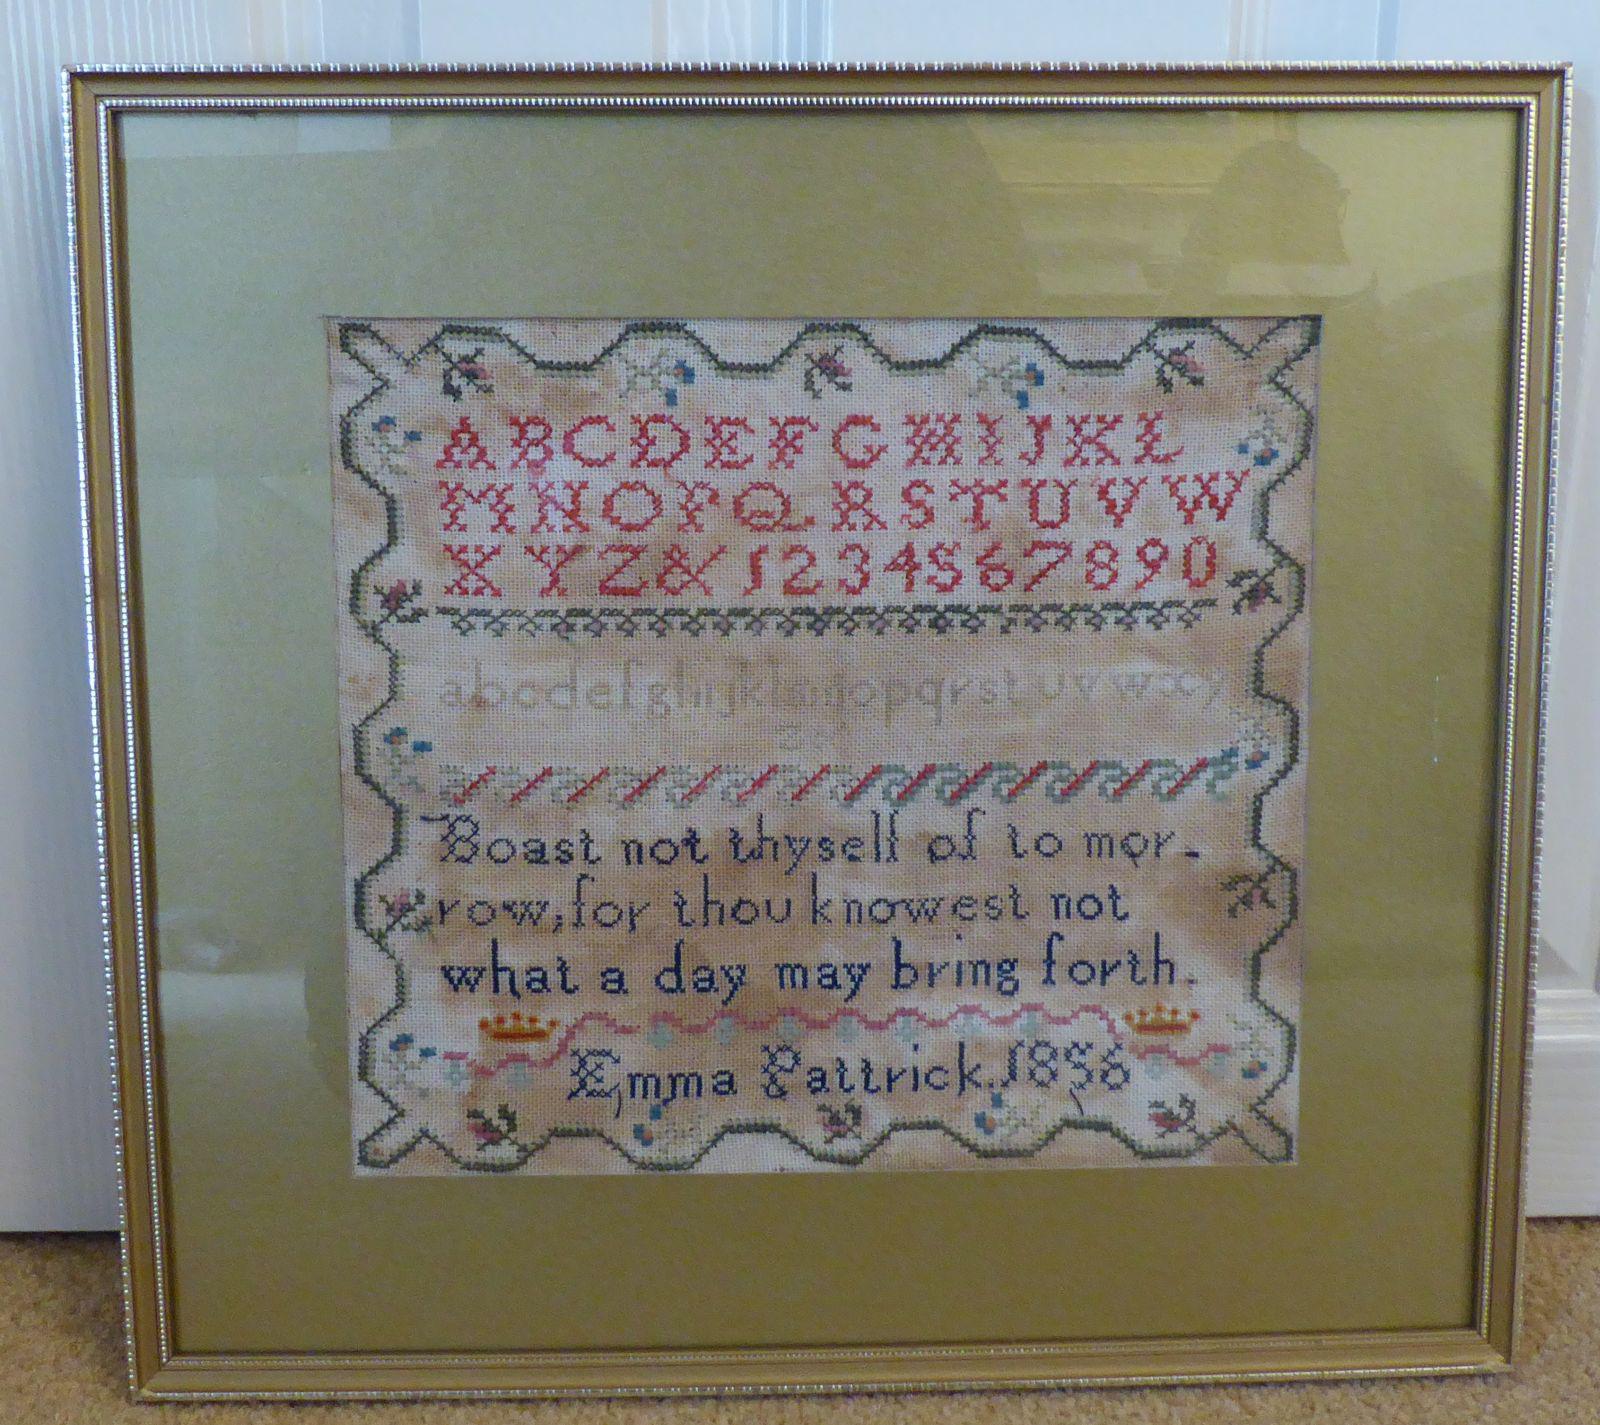 ABCDEFGHIJKL
MNOPQRSTUVW
XYZ&1234567890
abcdefghijklmnopqrstuvwxy
z
Boast not thyself of to mor-
row, for thou knowest not
what a day may bring forth.
Emma Pattrick. 1856